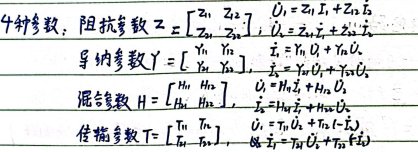 4种参数：阻抗参数 Z = [Z₁₁ Z₁₂ Z₂₁ Z₂₂], U̇₁ = Z₁₁ İ₁ + Z₁₂ İ₂ U̇₂ = Z₂₁ İ₁ + Z₂₂ İ₂
导纳参数 Y = [Y₁₁ Y₁₂ Y₂₁ Y₂₂], İ₁ = Y₁₁ U̇₁ + Y₁₂ U̇₂ İ₂ = Y₂₁ U̇₁ + Y₂₂ U̇₂
混合参数 H = [H₁₁ H₁₂ H₂₁ H₂₂], U̇₁ = H₁₁ İ₁ + H₁₂ U̇₂ İ₂ = H₂₁ İ₁ + H₂₂ U̇₂
传输参数 T = [T₁₁ T₁₂ T₂₁ T₂₂], U̇₁ = T₁₁ U̇₂ + T₁₂ (-İ₂) İ₁ = T₂₁ U̇₂ + T₂₂ (-İ₂)